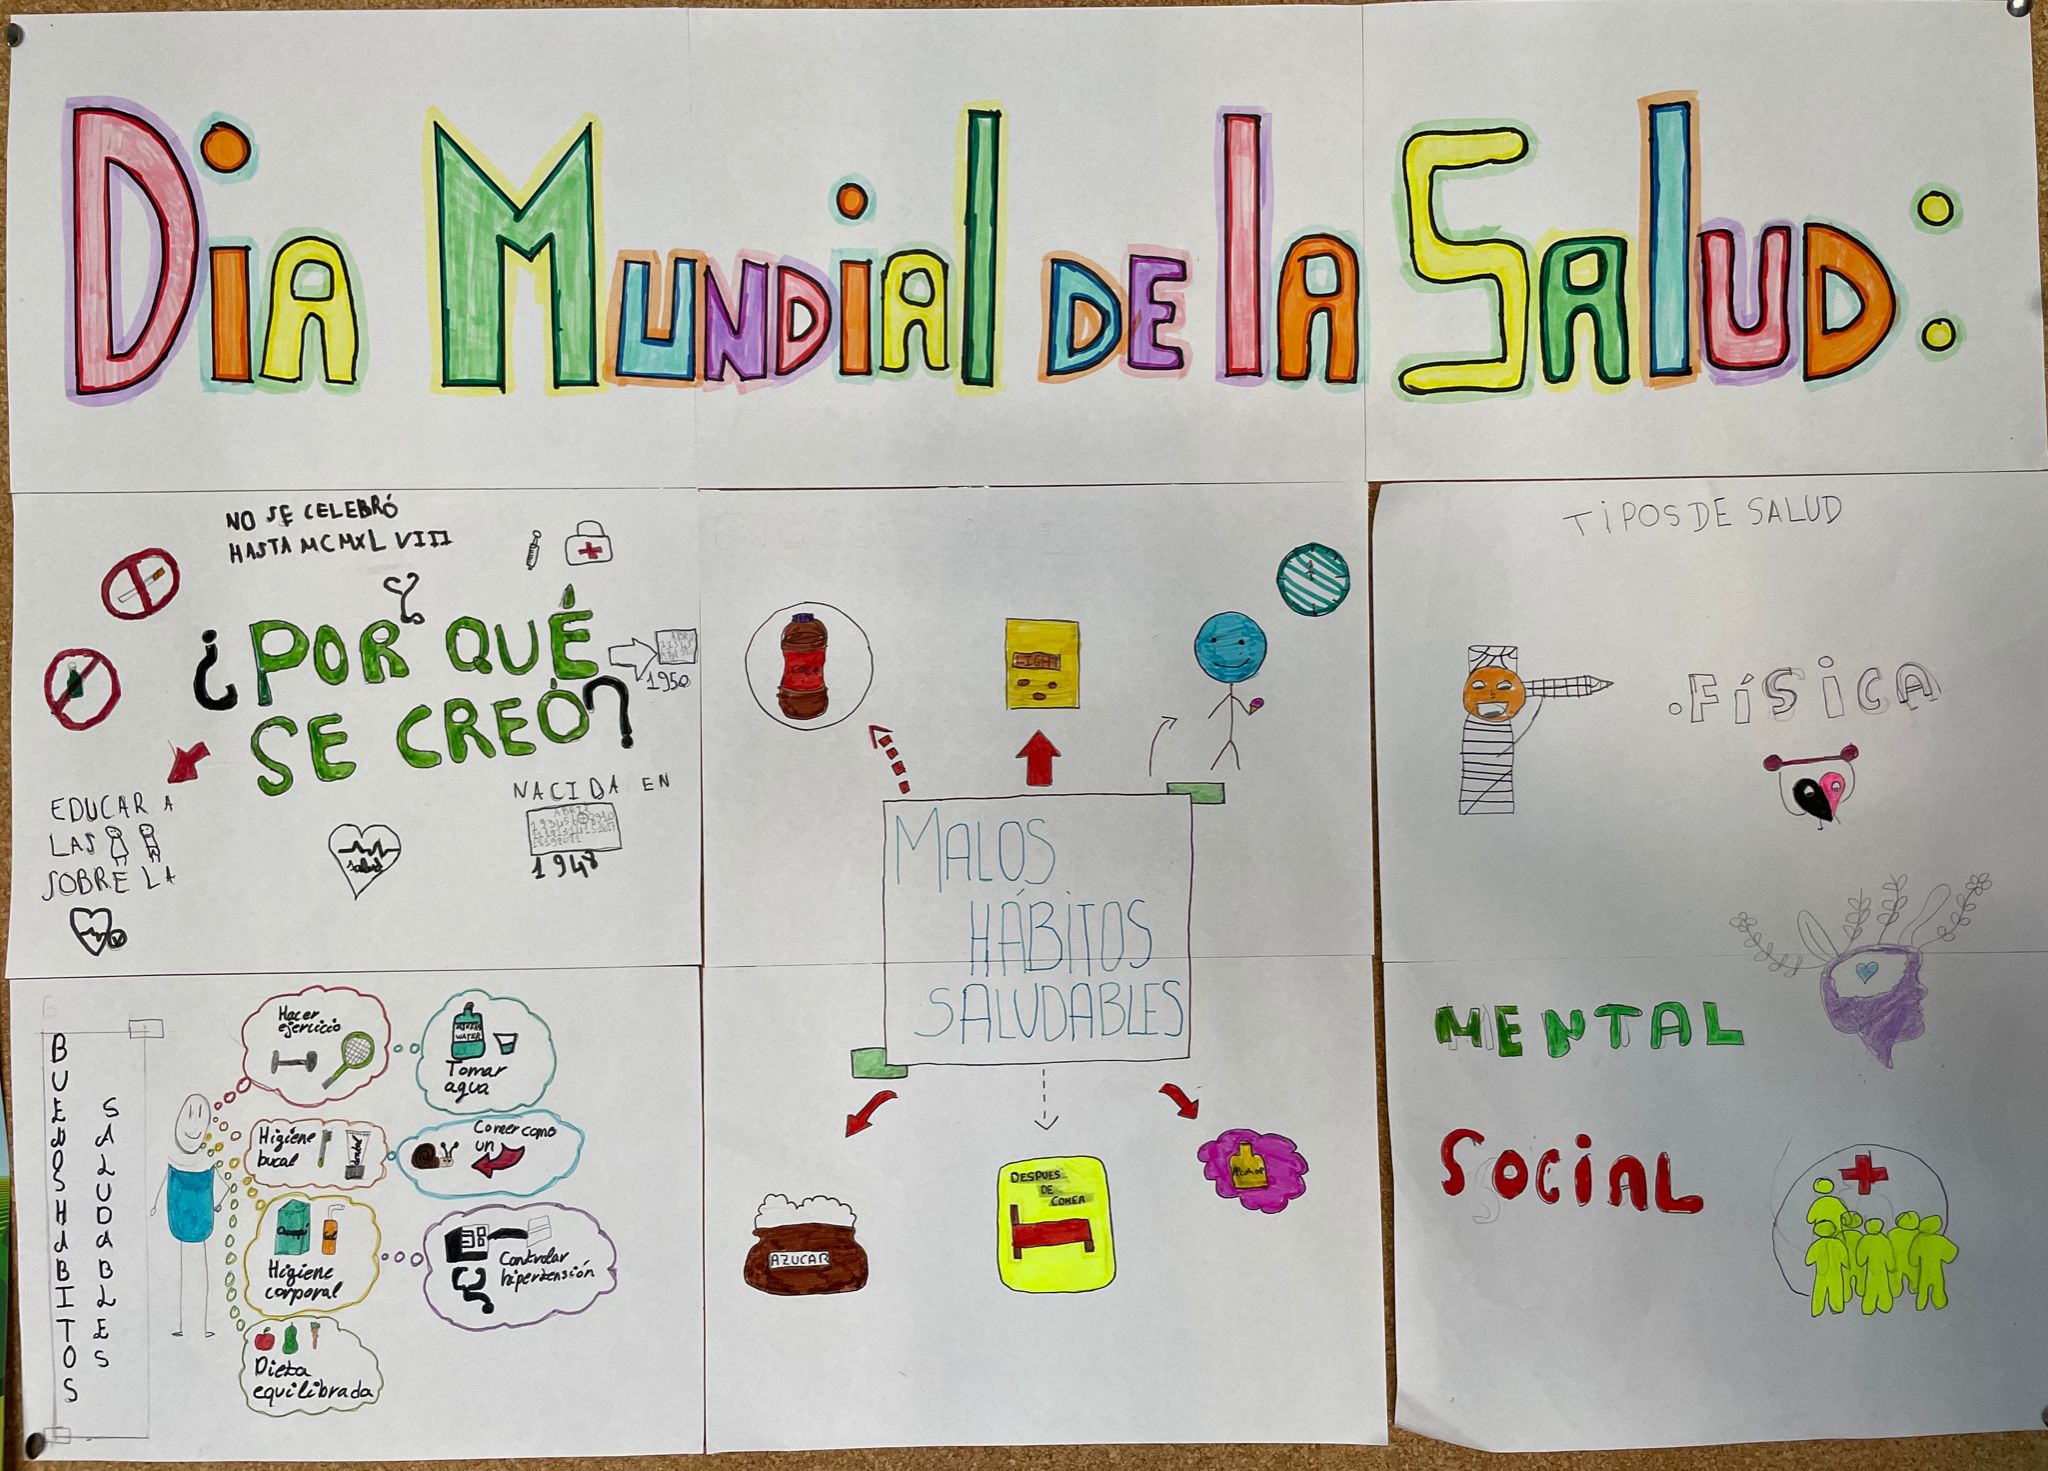 Dia Mundial de la Salud:
NO SE CELEBRÓ
HASTA MCMXLVIII
¿POR QUÉ
SE CREÓ?
1950
EDUCAR A
LAS
SOBRE LA
salud
NACIDA EN
ABRIL
1948
COLA
LIGHT
MALOS
HÁBITOS
SALUDABLES
AZUCAR
DESPUES
DE
COMER
Alcohol
TIPOS DE SALUD
. FÍSICA
MENTAL
SOCIAL
BUENOS HABITOS
SALUDABLES
Hacer
ejercicio
WATER
Tomar
agua
Higiene
bucal
dental
Comer como
un
Higiene
corporal
Controlar
hipertensión
Dieta
equilibrada